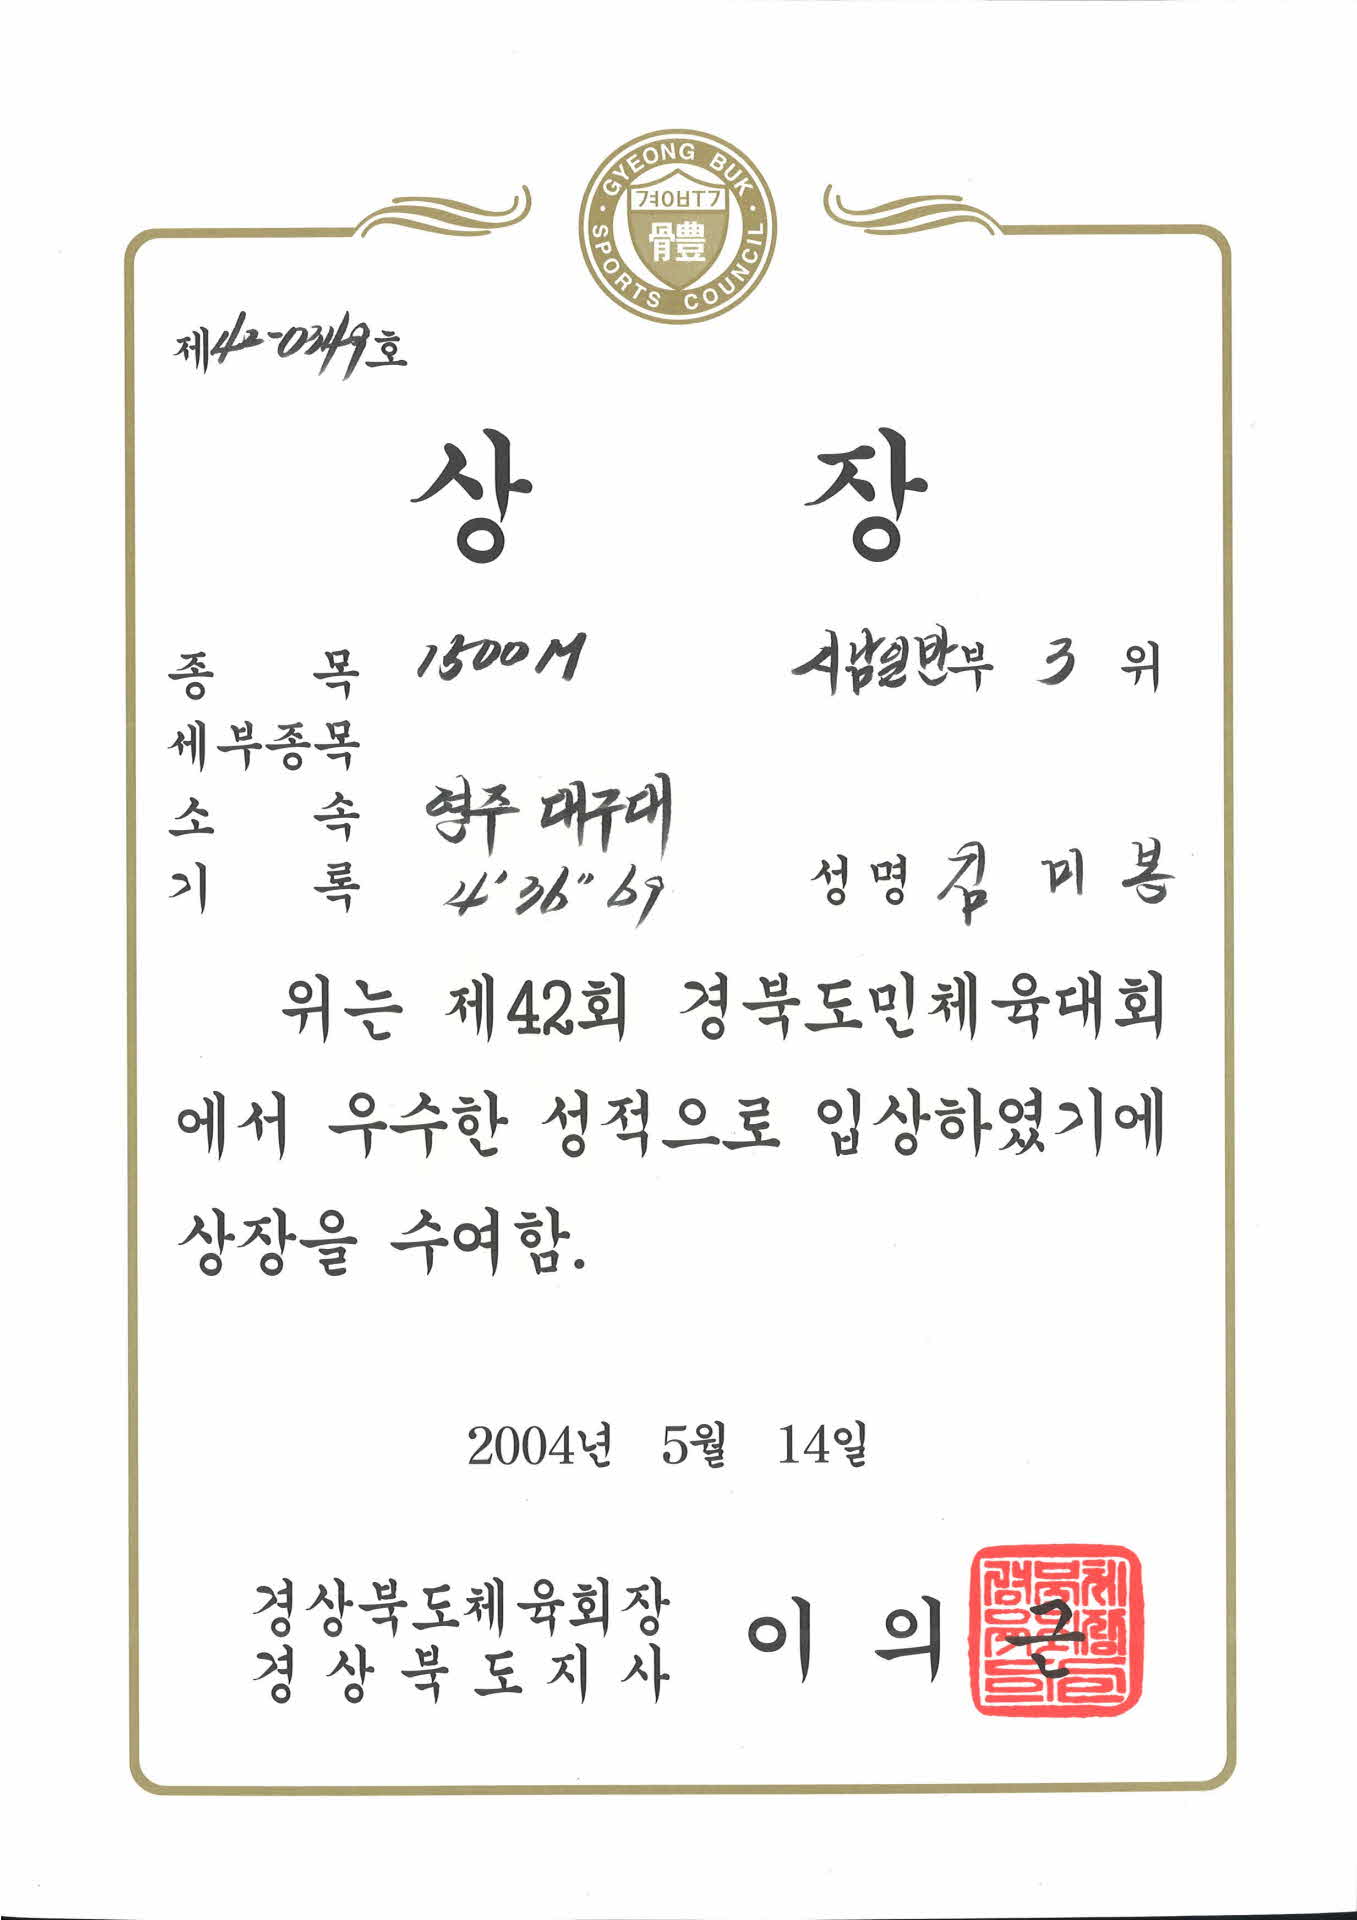 GYEONG BUK
ㄱㅕㅇㅂㅜㄱ
體
SPORTS COUNCIL
제42-0349호
상 장
종 목 1500M 시남일반부 3 위
세부종목
소 속 영주 대구대
기 록 4′36″69 성명 김 미 봉
위는 제42회 경북도민체육대회
에서 우수한 성적으로 입상하였기에
상장을 수여함.
2004년 5월 14일
경상북도체육회장
경상북도지사 이 의 근